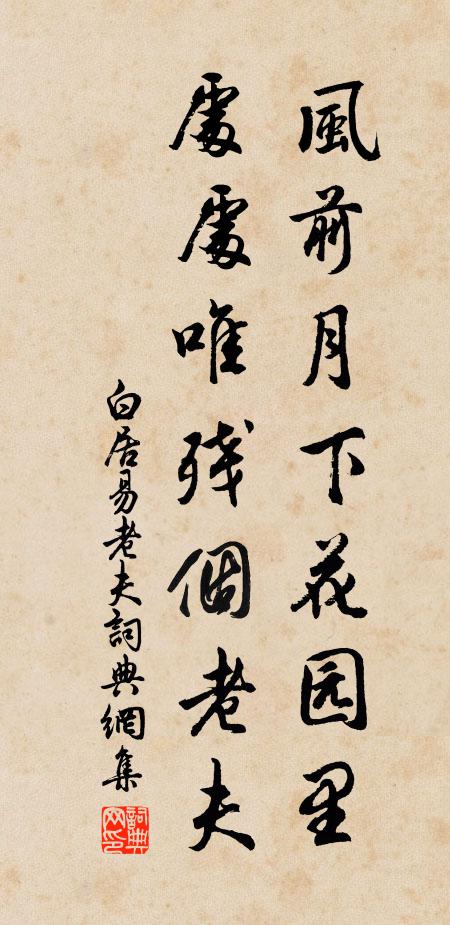 風前月下花园里
處處唯殘個老夫
白居易老夫詞典網集
詞典网印